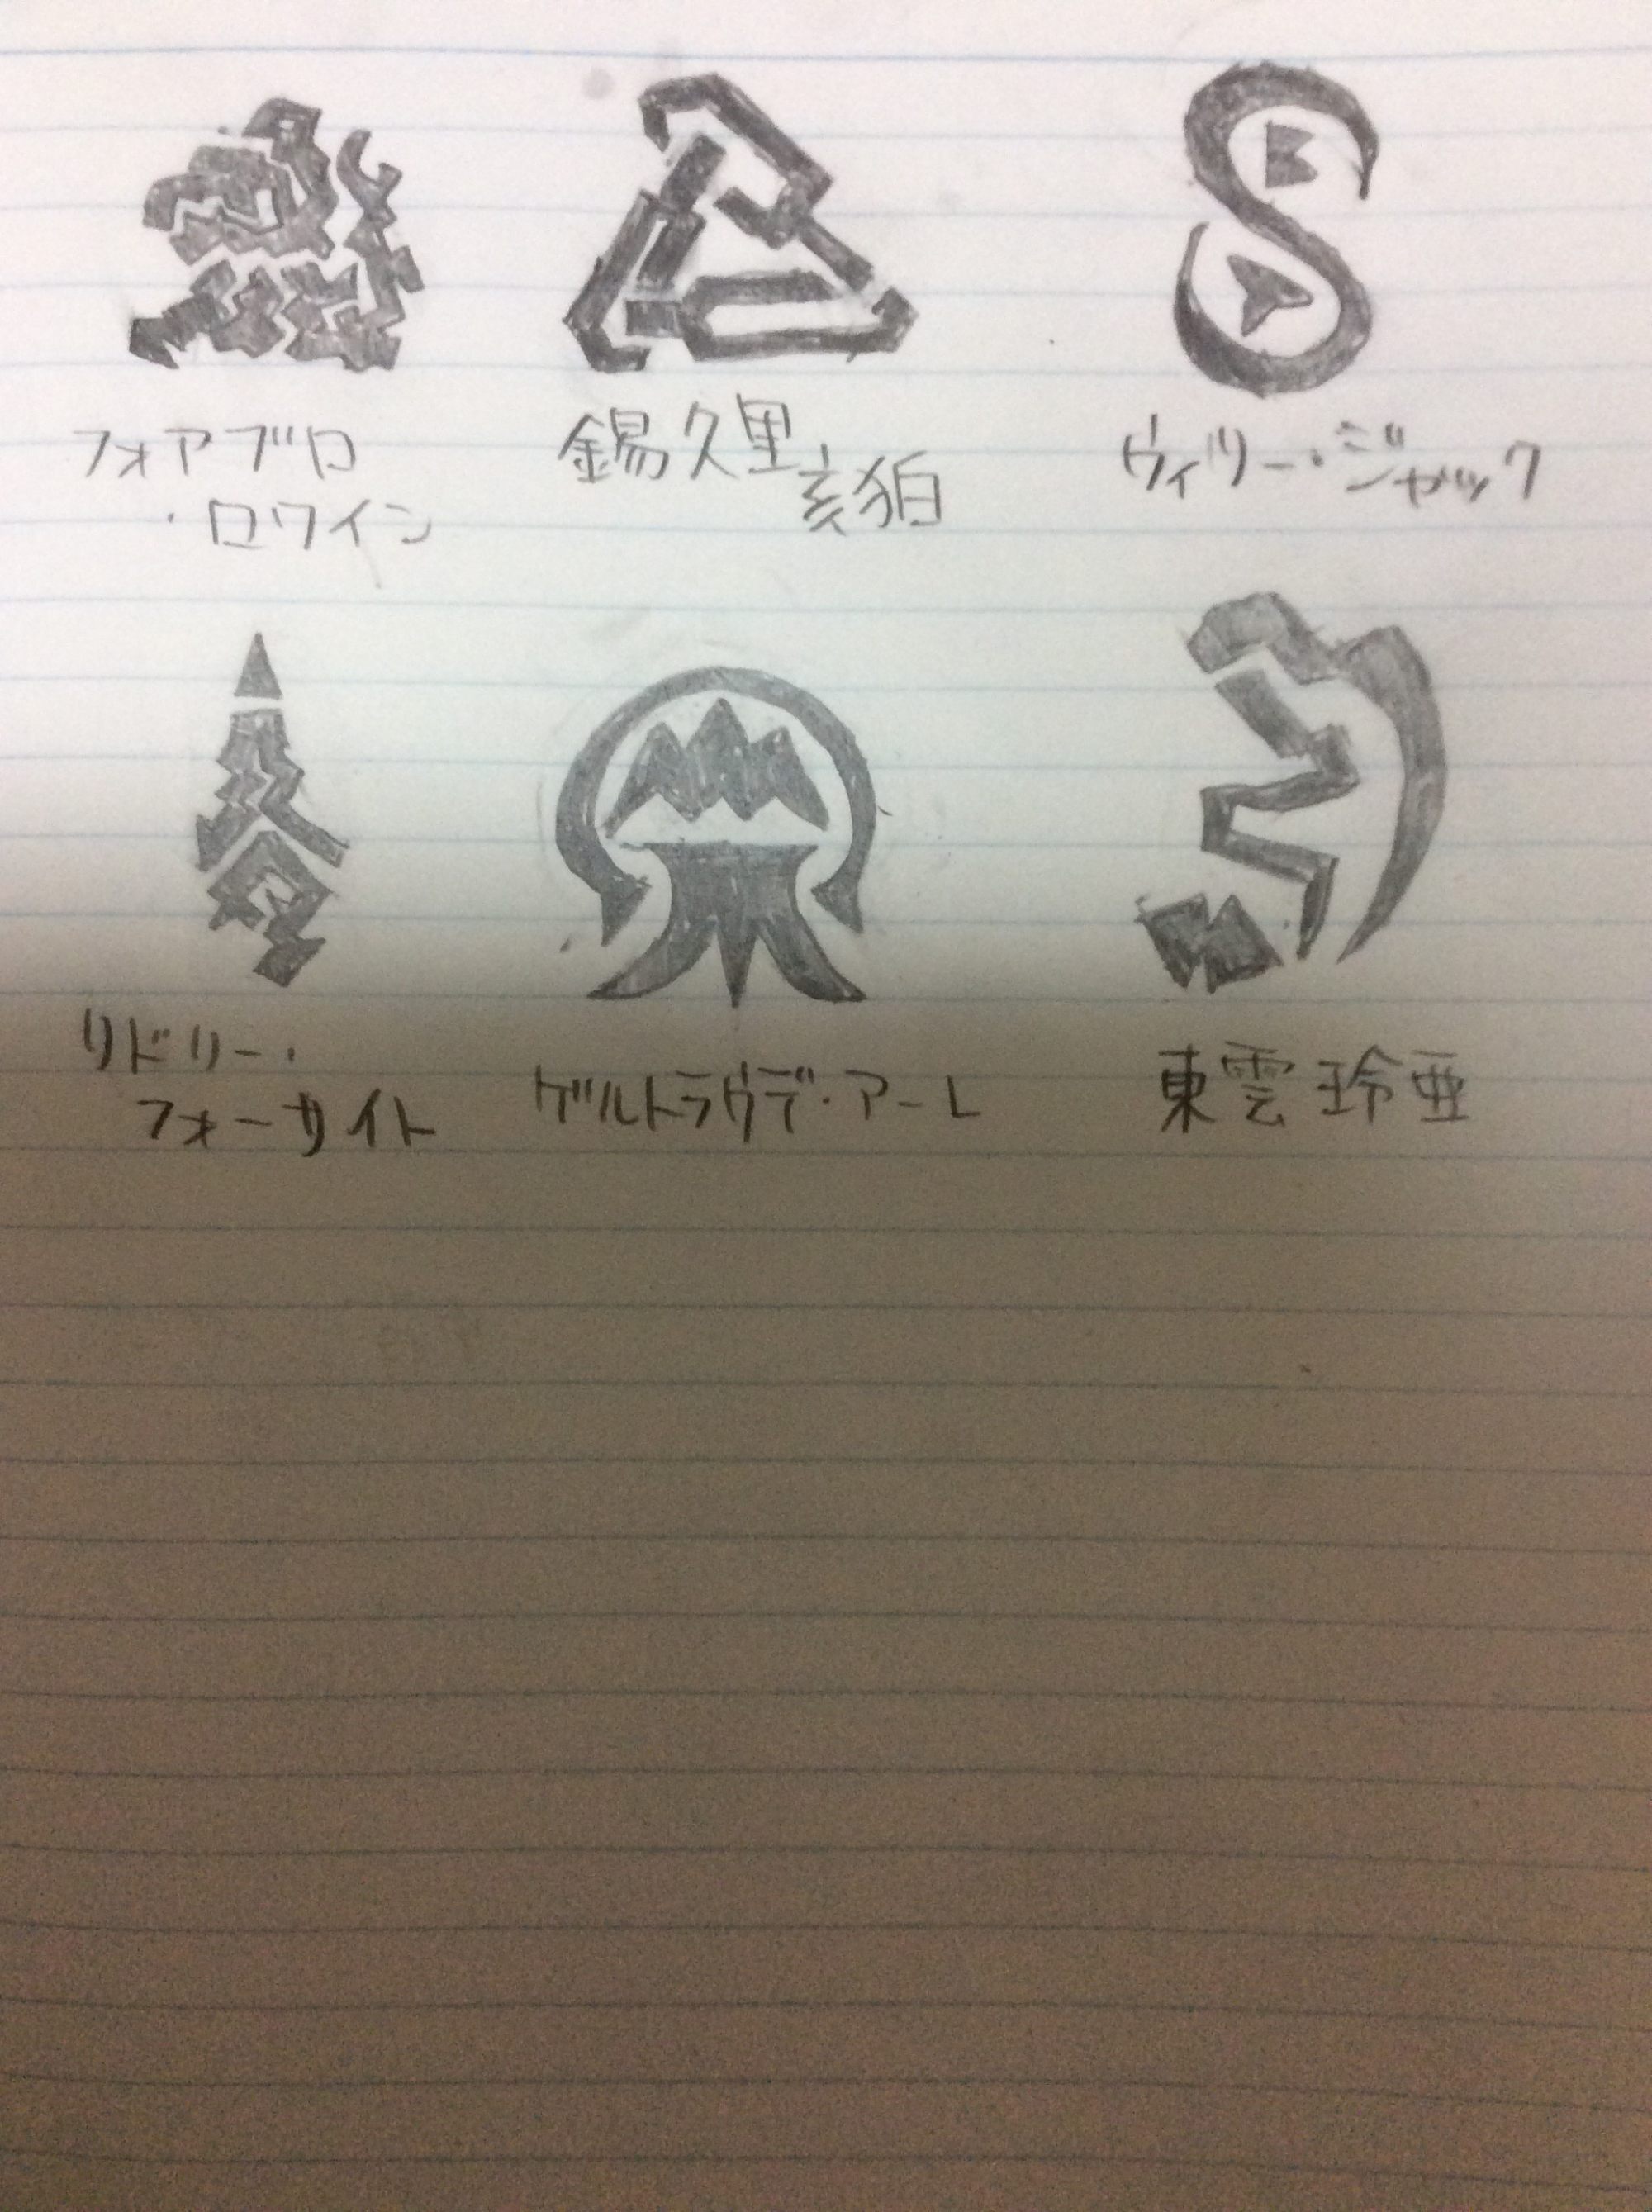 フォアブロ
・ロワイン
錫久里
亥狛
ヴィリー・ジャック
リドリー・
フォーサイト
ゲルトラウデ・アーレ
東雲玲亜